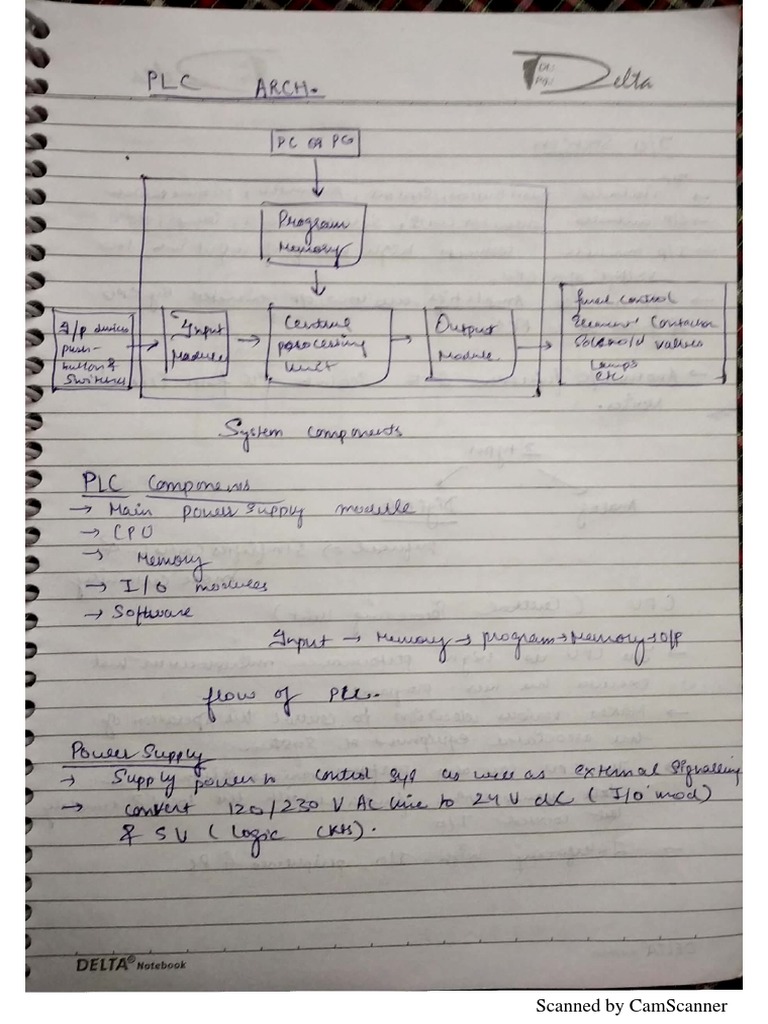 PLC ARCH.
Dt.:
Pg.:
Delta
PC or PG
Program
Memory
I/p devices
push-
button &
Switches
Input
Module
Central
processing
unit
Output
Module
final control
Element Contactor
Solenoid valves
Lamps
etc
System components
PLC Components
→ Main power supply module
→ CPU
→ Memory
→ I/O modules
→ Software
Input → Memory → program → Memory → O/P
flow of PLC.
Power Supply
→ Supply power to control sys as well as external signalling
→ convert 120/230 V AC line to 24 V dc (I/O mod)
& 5V (Logic CKts).
DELTA® Notebook
Scanned by CamScanner